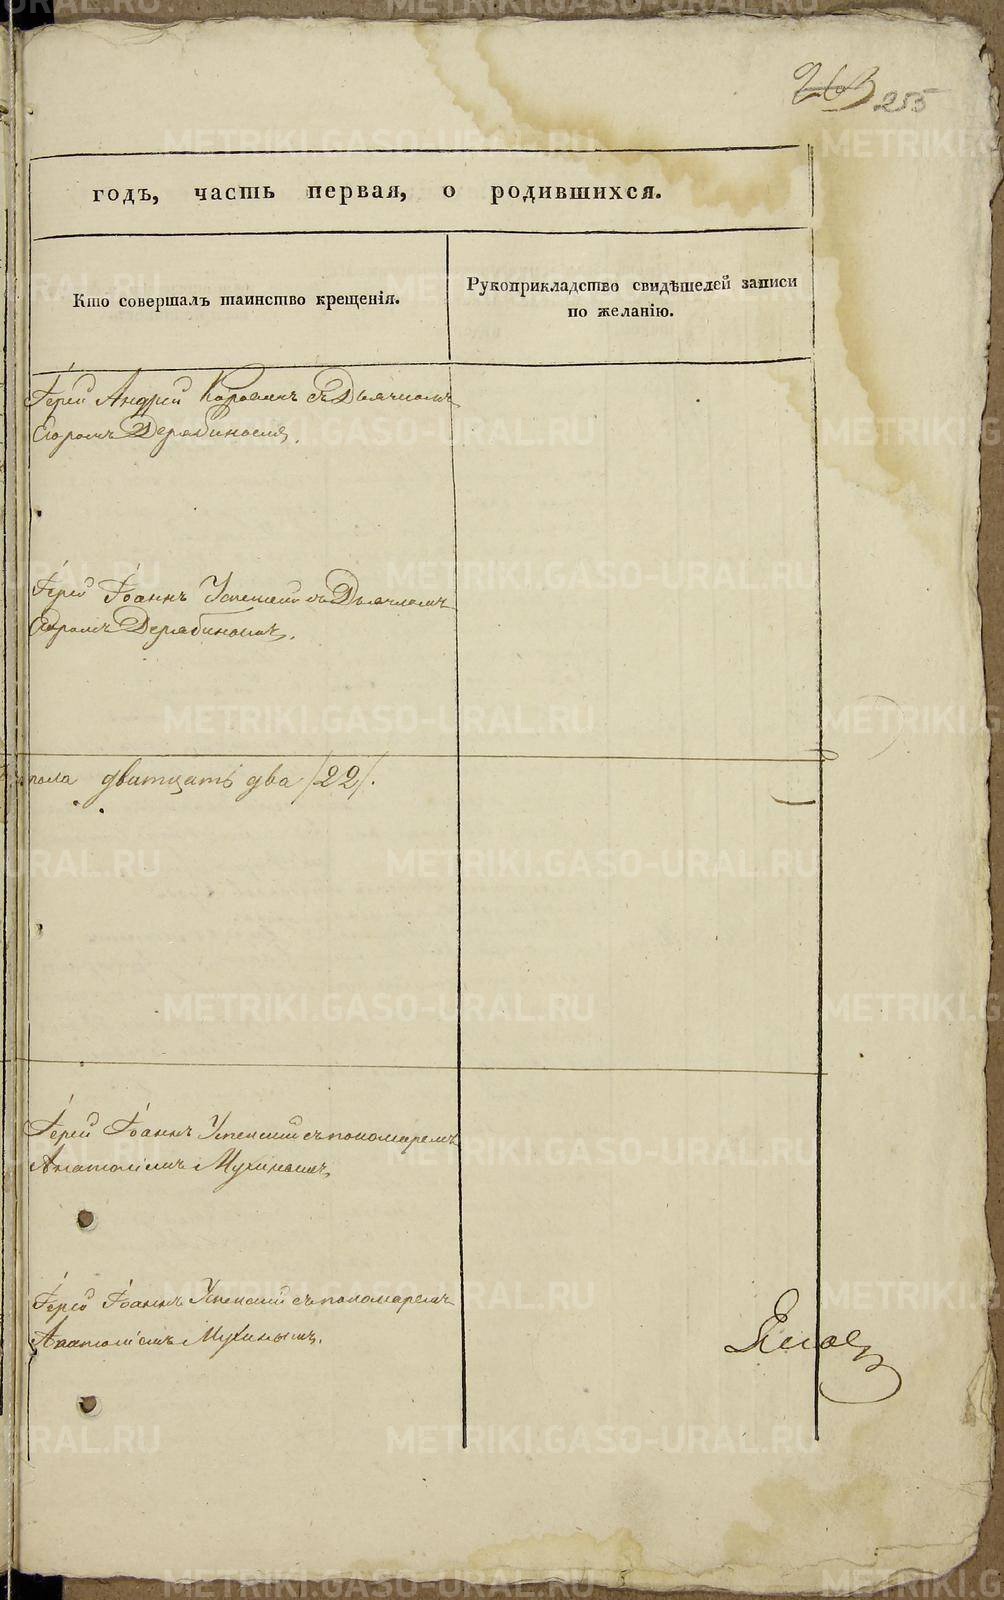 263 255
годъ, часть первая, о родившихся.
Кто совершалъ таинство крещенія.
Рукоприкладство свидѣтелей записи
по желанію.
Іерей Андрей Коровинъ съ Дьячкомъ
Дерябинымъ.
Іерей Іоаннъ Успенскій съ Дьячкомъ
Дерябинымъ.
пола дватцать два /22/.
Іерей Іоаннъ Успенскій съ пономаремъ
Анатоліемъ Мухинымъ.
Іерей Іоаннъ Успенскій съ пономаремъ
Анатоліемъ Мухинымъ.
METRIKI.GASO-URAL.RU